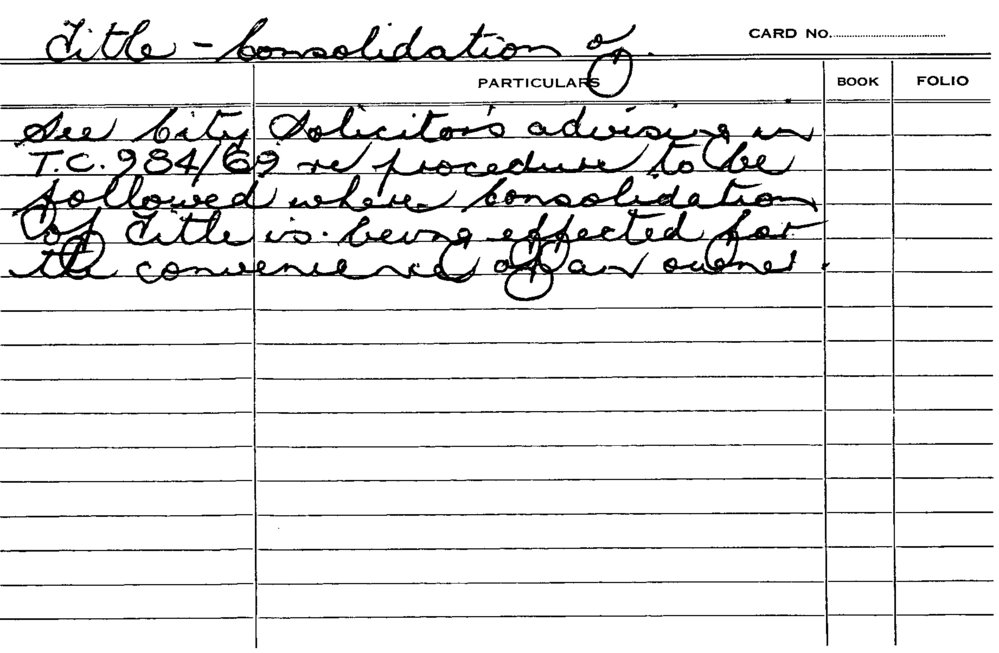 Title - Consolidation of.
CARD No.
PARTICULARS BOOK FOLIO
See City Solicitor's advising in
T.C. 984/69 re procedure to be
followed where Consolidation
of Title is being effected for
the convenience of an owner.